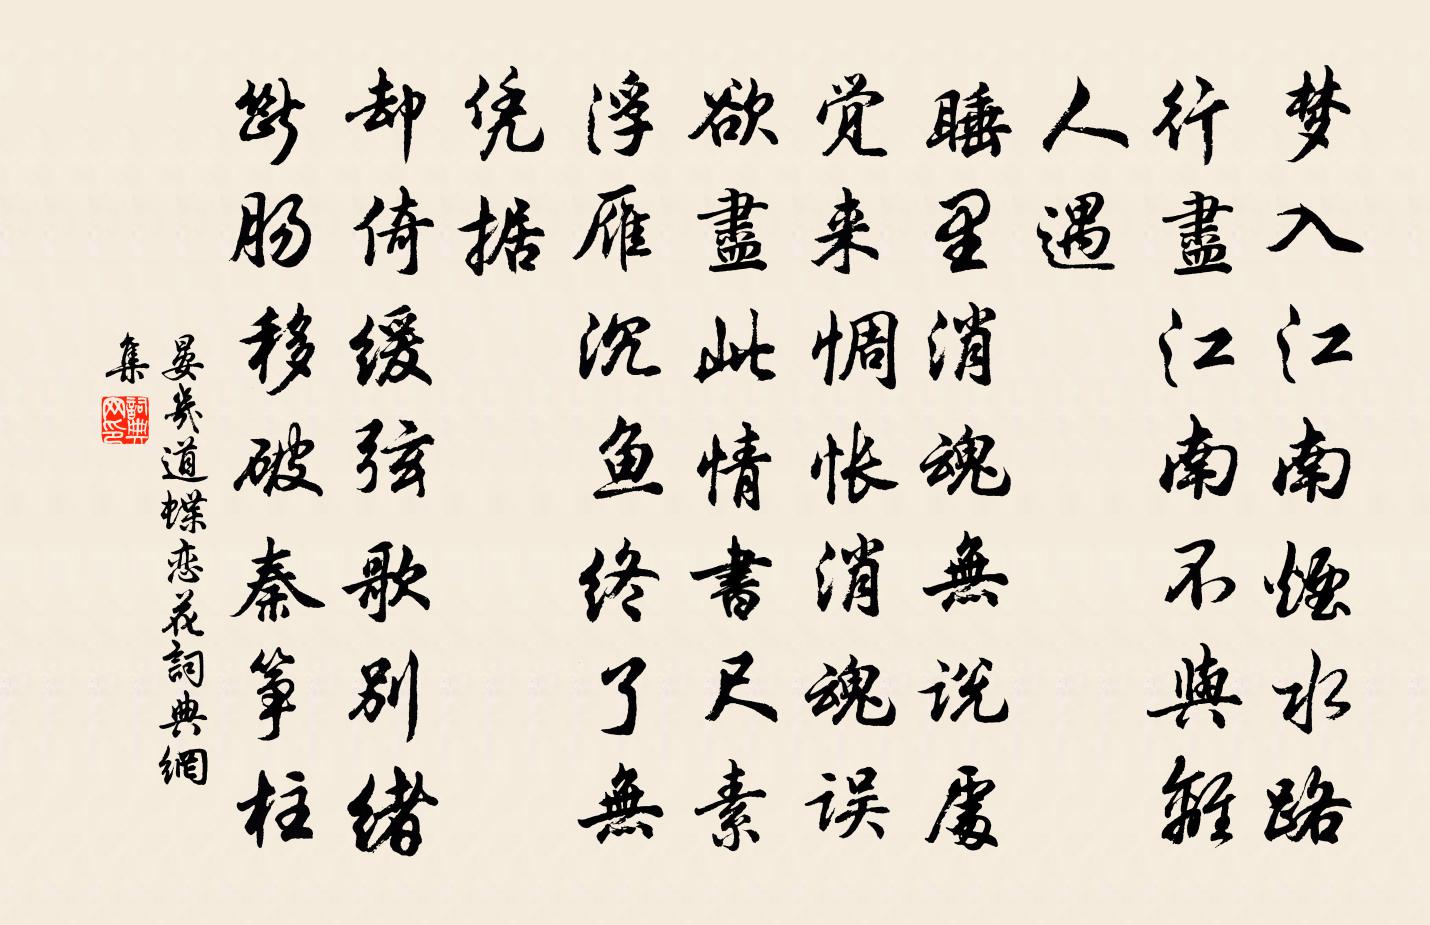 梦入江南煙水路
行盡江南不與離
人遇
睡里消魂無说處
觉来惆怅消魂误
欲盡此情書尺素
浮雁沉鱼终了無
凭据
却倚缓弦歌别绪
斷肠移破秦筝柱
晏幾道蝶恋花詞典網
集
詞典
网印